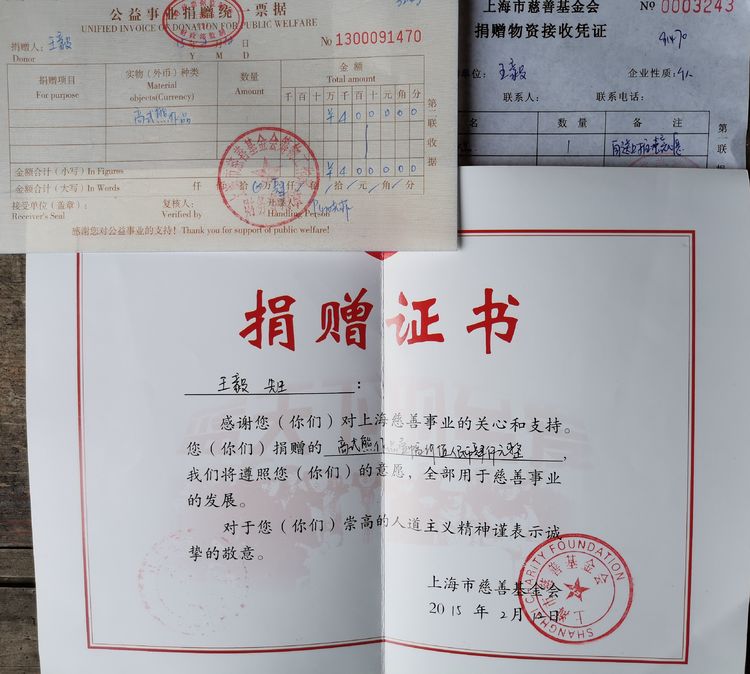 公益事业捐赠统一票据
UNIFIED INVOICE OF DONATION FOR PUBLIC WELFARE
捐赠人：王毅
Donor
Y M D
No 1300091470
捐赠项目 实物（外币）种类 数量 金额
For purpose Material objects(Currency) Amount Total amount
千 百 十 万 千 百 十 元 角 分
高式熊作品 ¥ 4 0 0 0 0 0
金额合计（小写）In Figures ¥ 4 0 0 0 0 0
金额合计（大写）In Words 仟 佰 拾 万 肆 仟 佰 拾 元 角 分
接受单位（盖章）： 复核人： 开票人：
Receiver's Seal Verified by Handling Person
感谢您对公益事业的支持！Thank you for support of public welfare!
第一联 收据
上海市慈善基金会 No 0003243
捐赠物资接收凭证
91470
单位： 王毅 企业性质：个人
联系人： 联系电话：
名 数量 备注
1
第一联
捐赠证书
王毅 先生：
感谢您（你们）对上海慈善事业的关心和支持。
您（你们）捐赠的 高式熊作品壹幅价值人民币肆仟元整，
我们将遵照您（你们）的意愿，全部用于慈善事业
的发展。
对于您（你们）崇高的人道主义精神谨表示诚
挚的敬意。
上海市慈善基金会
2015 年 2 月 12 日
SHANGHAI CHARITY FOUNDATION
上海市慈善基金会